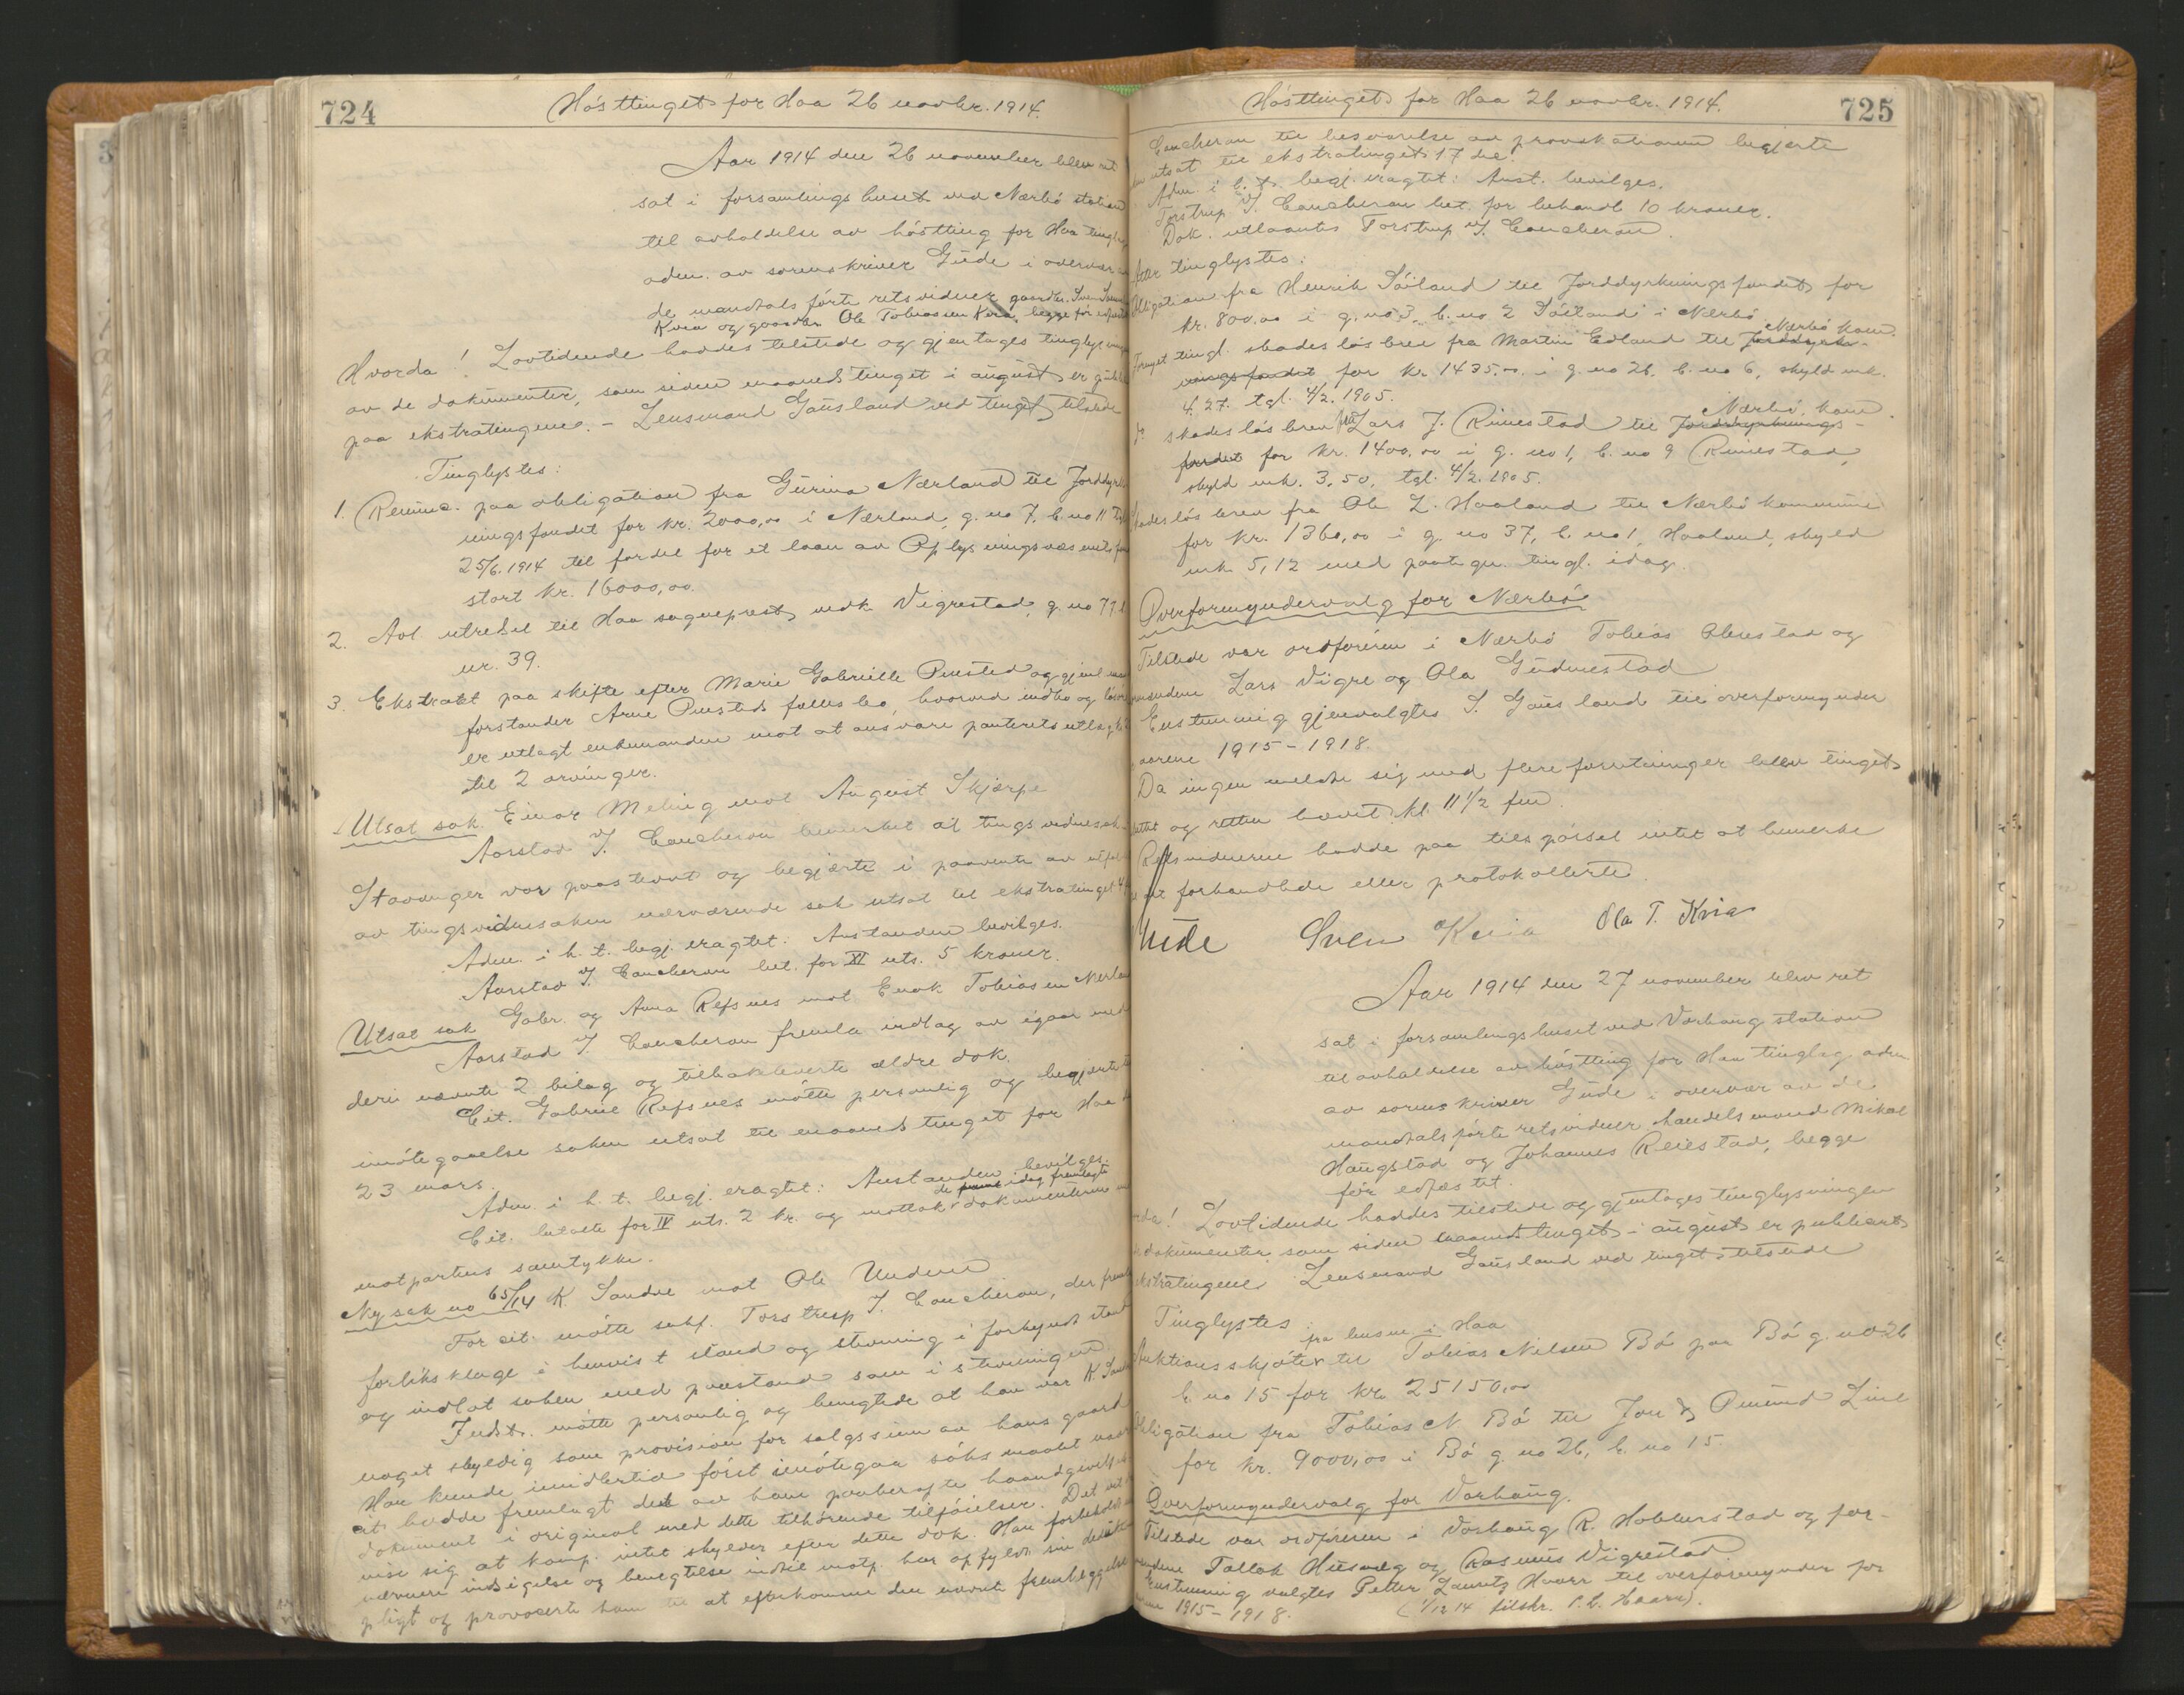 724
Hösttinget for Haa 26 novbr. 1914.
Aar 1914 den 26 november blev ret
sat i forsamlingshuset ved Nærbö station
til avholdelse av hösting for Haa tinglag
adm. av sorenskriver Gude i overvær av
de mandtalsförte retsvidner gaardbr. Sven
Kvia og gaardbr. Ole Tobiassen Kvia, begge før
Hvorda! Lovtidende haddes tilstede og gjentages tinglysningen
av de dokumenter, som siden maanedstinget i august er
paa ekstratingene. - Lensmand Gausland ved tinget tilstede
Tinglystes:
1. Reünc. paa obligation fra Gurina Nærland til Jorddyrk
ningsfondet for kr. 2000,00 i Nærland, g. no 7, b. no 11
25/6 1914 til fordel for et laan av Oplysningsvæsenets
stort kr. 16000,00.
2. Avl. utredsel til Haa sogneprest vedk. Vigrestad, g. no 77
nr. 39.
3. Ekstrakt paa skifte efter Marie Gabrielle og gjenl.
forstander Arne fællesbo, hvorved indbo og
er utlagt enkemanden mot at ansvare panteretsutlæg
til 2 arvinger.
Utsat sak. Einar Meling mot August Skjærpe
Aarstad v/ Caucheron bemerket at tingsvidnesak
Stavanger var paastevnt og begjærte i paavente av
av tingsvidnesaken nærværende sak utsat til ekstratinget
Adm. i h. t. begj. eragtet: Anstanden bevilges.
Aarstad v/ Caucheron bet. for XI uts. 5 kroner.
Utsat sak Gabr. og Anna Refsnes mot Enok Tobiasen
Aarstad v/ Caucheron fremla indlæg av igaar med
deri nævnte 2 bilag og tilbakeleverte ældre dok.
Cit. Gabriel Refsnes mötte personlig og begjærte til
imötegaaelse saken utsat til maanedstinget for Haa
23 mars.
Adm. i h. t. begj. eragtet: Anstanden bevilges.
de idag fremlagte
Cit. betalte for IV uts. 2 kr. og mottok dokumenterne
motpartens samtykke.
Ny sak no 65/14 K. Sandve mot Ole Undem
For cit. mötte sakf. Torstrup v/ Caucheron, der
forliksklage i henvist stand og stevning i forkyndt stand
og indlot saken med paastand som i stevningen.
Indst. mötte personlig og benegtede at han var K.
noget skyldig som provision for salgssum av hans gaard
Han kunde imidlertid först imötegaa söksmaalet naar
cit. hadde fremlagt det av ham paaberopte haandgivelses
dokument i original med dette tilhörende tilföielser. Det vil
vise sig at komp. intet skylder efter dette dok. Han forbeholdt
nærmere indsigelse og benegtelse indtil motp. har opfyldt sin
pligt og provocerte ham til at efterkomme den nævnte fremlæggelse
Hösttinget for Haa 26 novbr. 1914.
725
Caucheron til besvarelse av provokationen begjærte
utsat til ekstratinget 17 de.
Adm. i h. t. begj. eragtet: Anst. bevilges.
Torstrup v/ Caucheron bet. for behandl. 10 kroner.
Dok. utlaantes Torstrup v/ Caucheron.
tinglystes:
Obligation fra Henrik Söiland til Jorddyrkningsfondet for
kr. 800,00 i g. no 3, b. no 2 Söiland i Nærbö
Nærbö kom.
Fornyet tingl. skadeslösbrev fra Martin Edland til Jorddyrk-
ningsfondet for kr. 1435,00 i g. no 26, b. no 6, skyld mk.
4,27. tgl. 4/2. 1905.
Nærbö kom.
skadeslösbrev fra Lars J. Rimestad til Jorddyrknings-
fondet for kr. 1400,00 i g. no 1, b. no 9 Rimestad,
skyld mk. 3,50, tgl. 4/2. 1905.
Skadeslösbrev fra Ole L. Haaland til Nærbö kommune
for kr. 1360,00 i g. no 37, b. no 1, Haaland, skyld
mk. 5,12 med paategn. tingl. idag.
Overformyndervalg for Nærbö
Tilstede var ordföreren i Nærbö Tobias Obrestad og
Lars Vigre og Ola Gudmestad
Enstemmig gjenvalgtes S. Gausland til overformynder
aarene 1915-1918.
Da ingen meldte sig med flere forretninger blev tinget
og retten hævet. Kl. 11 1/2 fm.
Retsvidnerne hadde paa tilspörsel intet at bemerke
forhandlede eller protokollerte.
Gude Sven Kvia Ola T. Kvia
Aar 1914 den 27 november blev ret
sat i forsamlingshuset ved Varhaug station
til avholdelse av hösting for Haa tinglag adm.
av sorenskriver Gude i overvær av de
mandtalsförte retsvidner handelsmand Mikal
Haugstad og Johannes Reiestad, begge
för edfæstet.
Lovtidende haddes tilstede og gjentages tinglysningen
dokumenter som siden maanedstinget i august er publicert
ekstratingene. Lensmand Gausland ved tinget tilstede
Tinglystes:
fra lensm. i Haa
Auktionsskjöte til Tobias Nilsen Bö paa Bö g. no 26
b. no 15 for kr. 25150,00
Obligation fra Tobias N. Bö til Jon & Line
for kr. 9000,00 i Bö g. no 26, b. no 15.
Overformyndervalg for Varhaug.
Tilstede var ordföreren i Varhaug R. Hobberstad og for-
Tollak Husvæg og Rasmus Vigrestad
Enstemmig valgtes Petter Lauritz Haarr til overformynder for
1915-1918. (1/12 14 tilskr. P. L. Haarr).